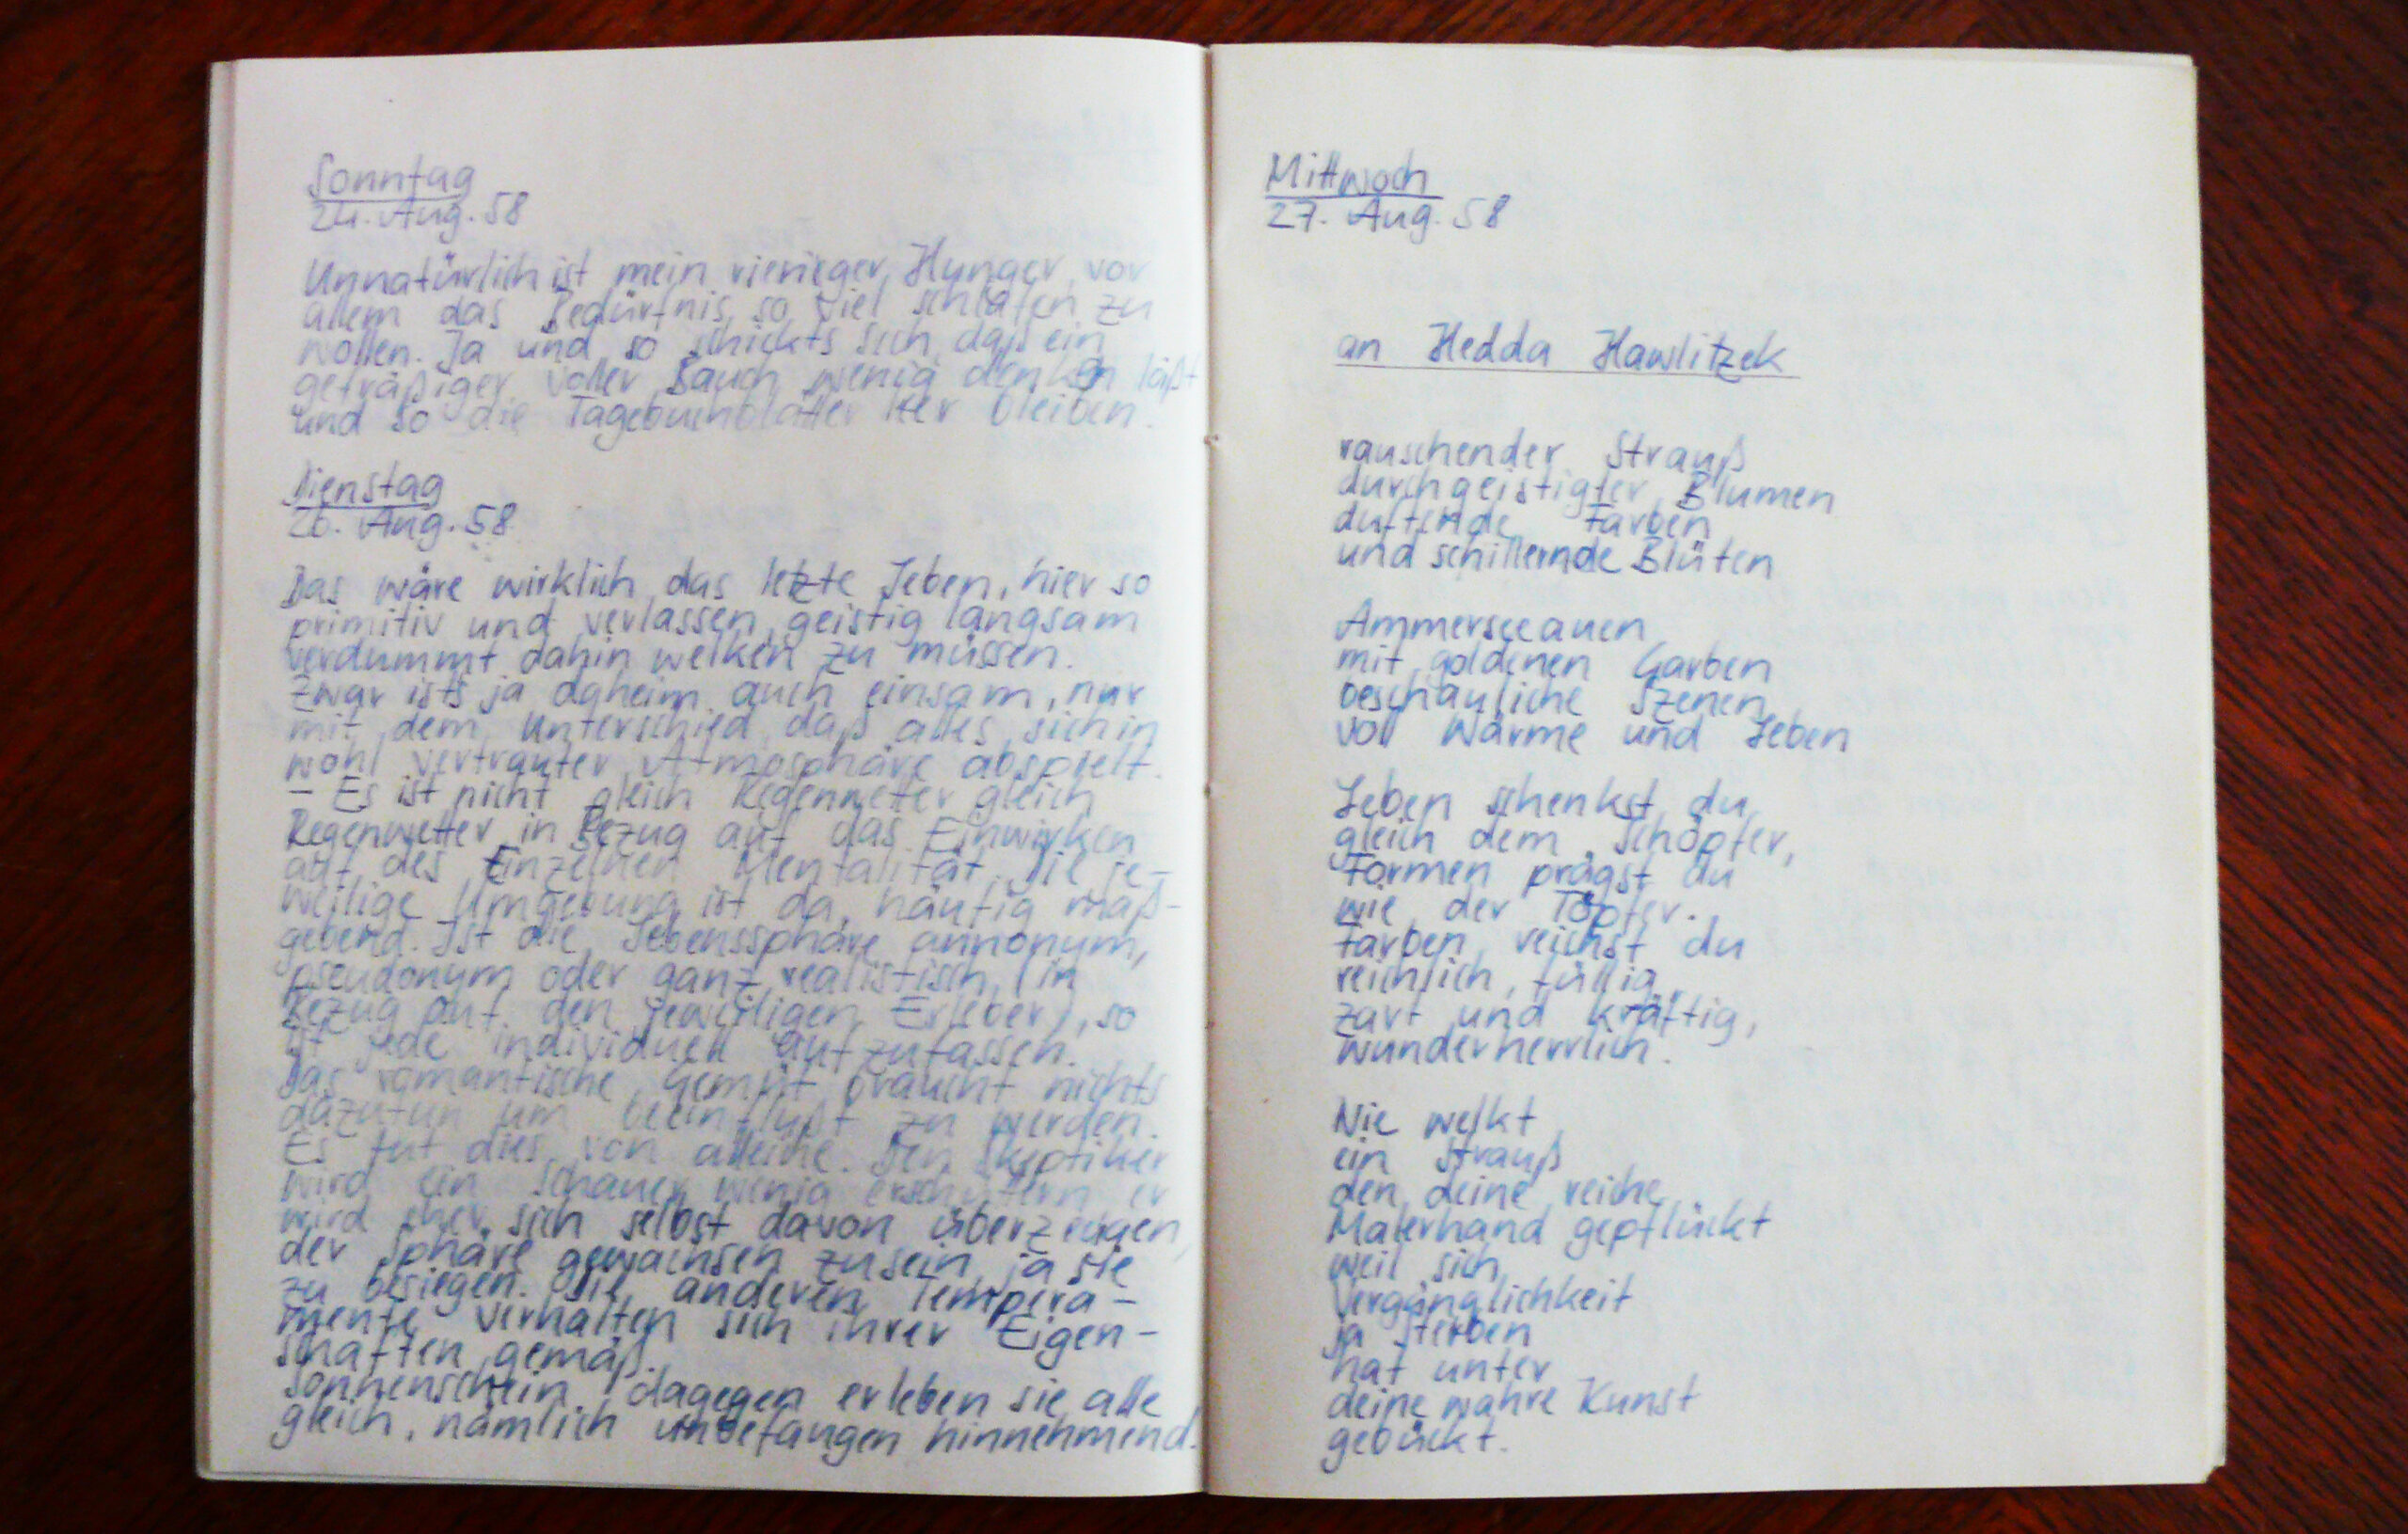 Sonntag
24. Aug. 58
Unnatürlich ist mein riesieger Hunger, vor
allem das Bedürfnis so viel schlafen zu
wollen. Ja und so schickts sich, daß ein
gefräßiger voller Bauch wenig denken läßt
und so die Tagebuchblätter leer bleiben.
Dienstag
26. Aug. 58
Das wäre wirklich das letzte Leben, hier so
primitiv und verlassen, geistig langsam
verdummt dahin welken zu müssen.
Zwar ists ja daheim auch einsam, nur
mit dem Unterschied daß alles sich in
wohl vertrauter Atmosphäre abspielt.
– Es ist nicht gleich Regenwetter gleich
Regenwetter in Bezug auf das Einwirken
auf des Einzelnen Mentalität. Die je-
weilige Umgebung ist da häufig maß-
gebend. Ist die Lebenssphäre annonym,
pseudonym oder ganz realistisch, (in
Bezug auf den jeweiligen Erleber), so
ist jede individuell aufzufassen.
Das romantische Gemüt braucht nichts
dazutun um beeinflußt zu werden.
Es tut dies von alleine. Den Skeptiker
wird ein Schauer wenig erschüttern er
wird eher sich selbst davon überzeugen,
der Sphäre gewachsen zusein, ja sie
zu besiegen. Die anderen Tempera-
mente verhalten sich ihrer Eigen-
schaften gemäß.
Sonnenschein dagegen erleben sie alle
gleich, nämlich unbefangen hinnehmend.
Mittwoch
27. Aug. 58
an Hedda Hawlitzek
rauschender Strauß
durchgeistigter Blumen
duftende Farben
und schillernde Blüten
Ammerseeauen
mit goldenen Garben
beschauliche Szenen
voll Wärme und Leben
Leben schenkst du
gleich dem Schöpfer,
Formen prägst du
wie der Töpfer.
Farben reichst du
reichlich, füllig,
zart und kräftig,
wunderherrlich.
Nie welkt
ein Strauß
den deine reiche
Malerhand gepflückt
weil sich
Vergänglichkeit
ja Sterben
hat unter
deine wahre Kunst
gebückt.